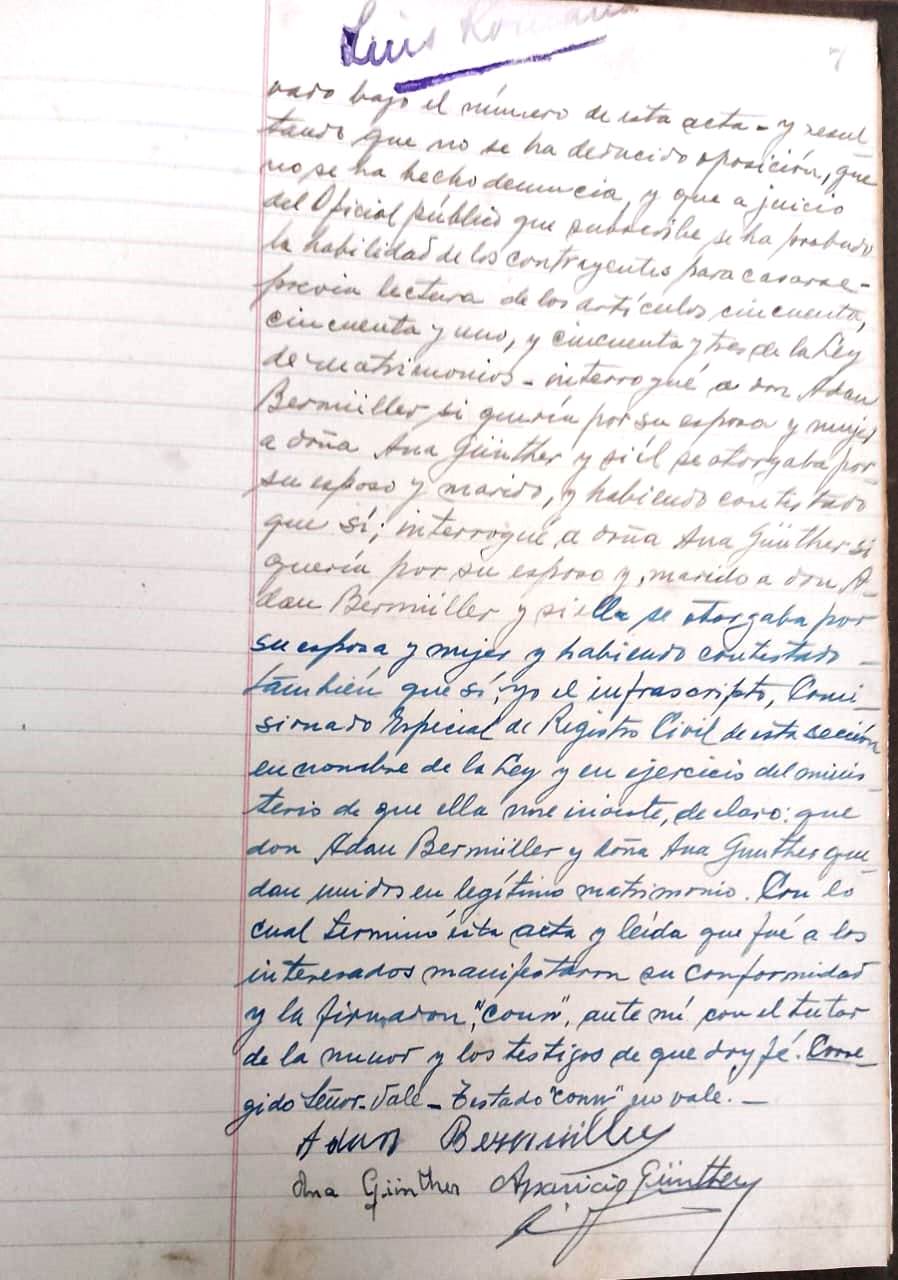 Luis Romana
7
vado bajo el número de esta acta - y resul-
tando que no se ha deducido oposición, que
no se ha hecho denuncia, y que a juicio
del Oficial público que subscribe se ha probado
la habilidad de los contrayentes para casarse -
previa lectura de los artículos cincuenta,
cincuenta y uno, y cincuenta y tres de la Ley
de matrimonios - interrogué a don Adan
Bermüller si quería por su esposa y mujer
a doña Ana Günther y si él se otorgaba por
su esposo y marido, y habiendo contestado
que sí; interrogué a doña Ana Günther si
quería por su esposo y marido a don A-
dan Bermüller y si ella se otorgaba por
su esposa y mujer y habiendo contestado -
también que sí, yo el infrascripto, Comi-
sionado Especial de Registro Civil de esta sección
en nombre de la Ley y en ejercicio del minis-
terio de que ella me inviste, declaro: que
don Adan Bermüller y doña Ana Gunther que-
dan unidos en legítimo matrimonio. Con lo
cual terminó esta acta y leída que fué a los
interesados manifestaron su conformidad
y la firmaron, "conn", ante mí con el tutor
de la menor y los testigos de que doy fé. Corre-
gido Señor - Vale - Testado "conn" no vale. -
Adan Bermüller
Ana Günther Aparicio Günther